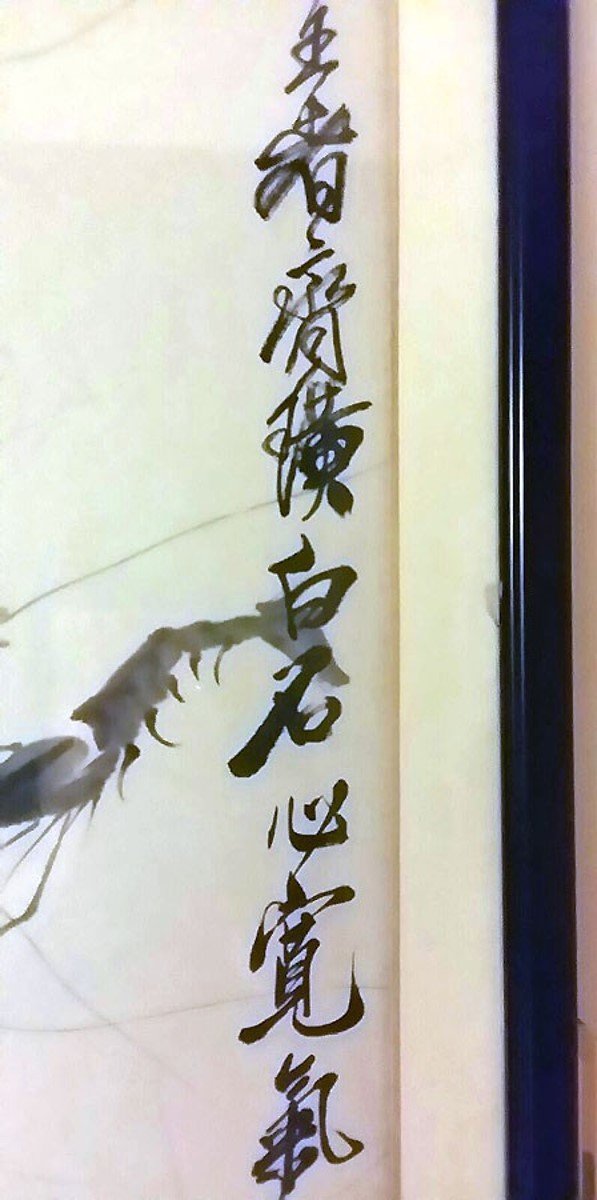 王者齊璜白石心寬氣